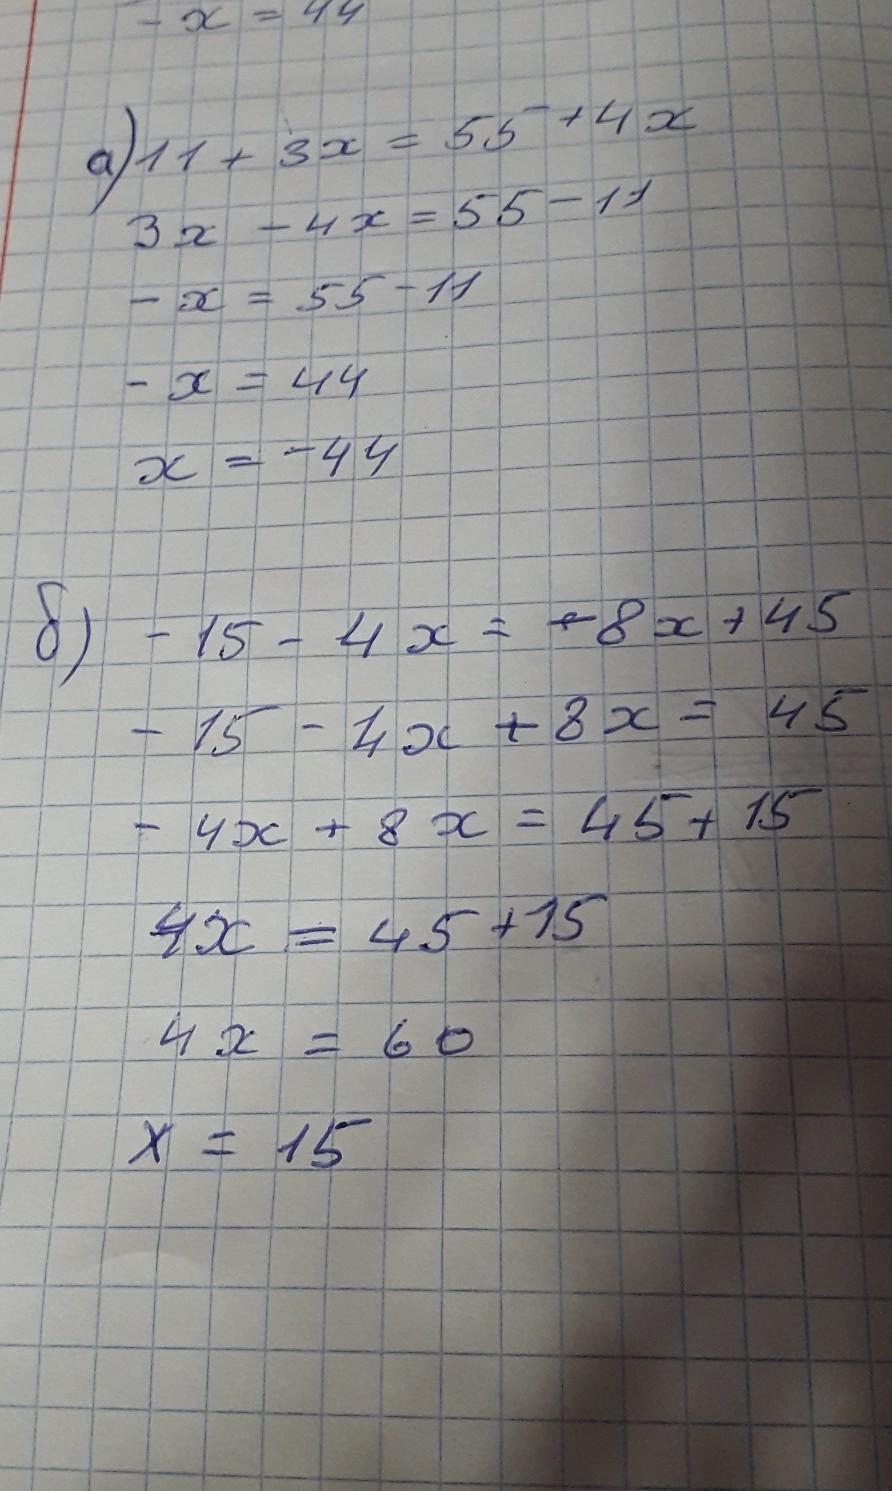 - x = 44
а) 11 + 3x = 55 + 4x
3x - 4x = 55 - 11
- x = 55 - 11
- x = 44
x = -44
б) - 15 - 4x = -8x + 45
- 15 - 4x + 8x = 45
- 4x + 8x = 45 + 15
4x = 45 + 15
4x = 60
x = 15